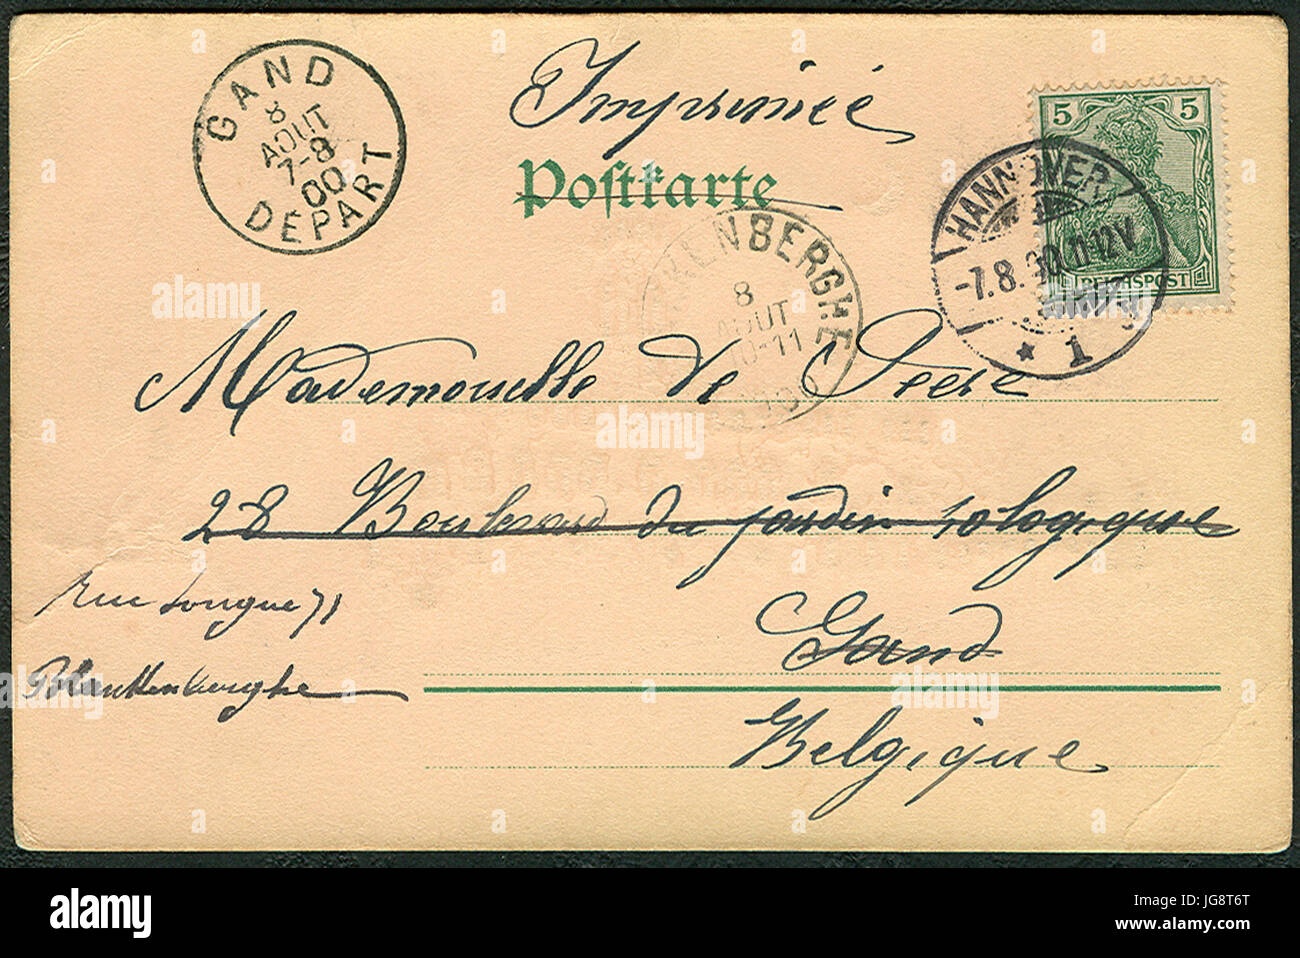 Imprimée
Postkarte
GAND
8
AOUT
7-8
00
DÉPART
5 5
REICHSPOST
HANNOVER
-7.8.00.11-12V
* 1
KENBERGHE
8
AOUT
10-11
1900
Mademoiselle de
28 Boulevard du jardin zologique
Gand
Rue Longue 71
Blankenberghe
Belgique
alamy
Image ID: JG8T6T
www.alamy.com